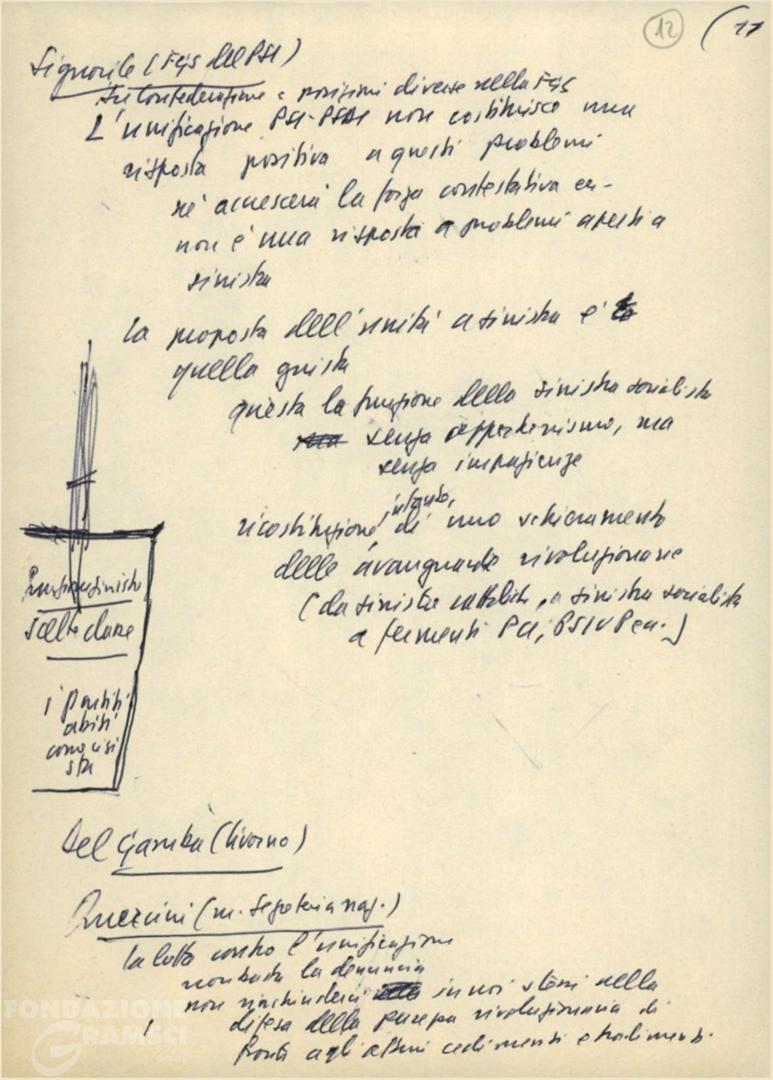 12 17
Signorile (FGS del PSI)
sul confederazione = posizioni diverse nella FGS
L'unificazione PSI-PSDI non costituisce una
risposta positiva a questi problemi
né accrescerà la forza contestativa ecc.
non è una risposta a problemi aperti a
sinistra
la proposta dell'unità a sinistra è
quella giusta
questa la funzione della sinistra socialista
senza opportunismo, ma
senza impazienze
intanto,
ricostituzione di uno schieramento
delle avanguardie rivoluzionarie
(da sinistra cattolica, a sinistra socialista
a fermenti PCI, PSIUP ecc.)
scelta classe
i partiti
abiti
come ci si
sta
Del Gamba (Livorno)
Querzini (m. Segreteria naz.)
la lotta contro l'unificazione
non basta la denuncia
non rinchiudersi in noi stessi nella
difesa della purezza rivoluzionaria di
fronte agli altrui cedimenti e tradimenti.
FONDAZIONE
GRAMSCI